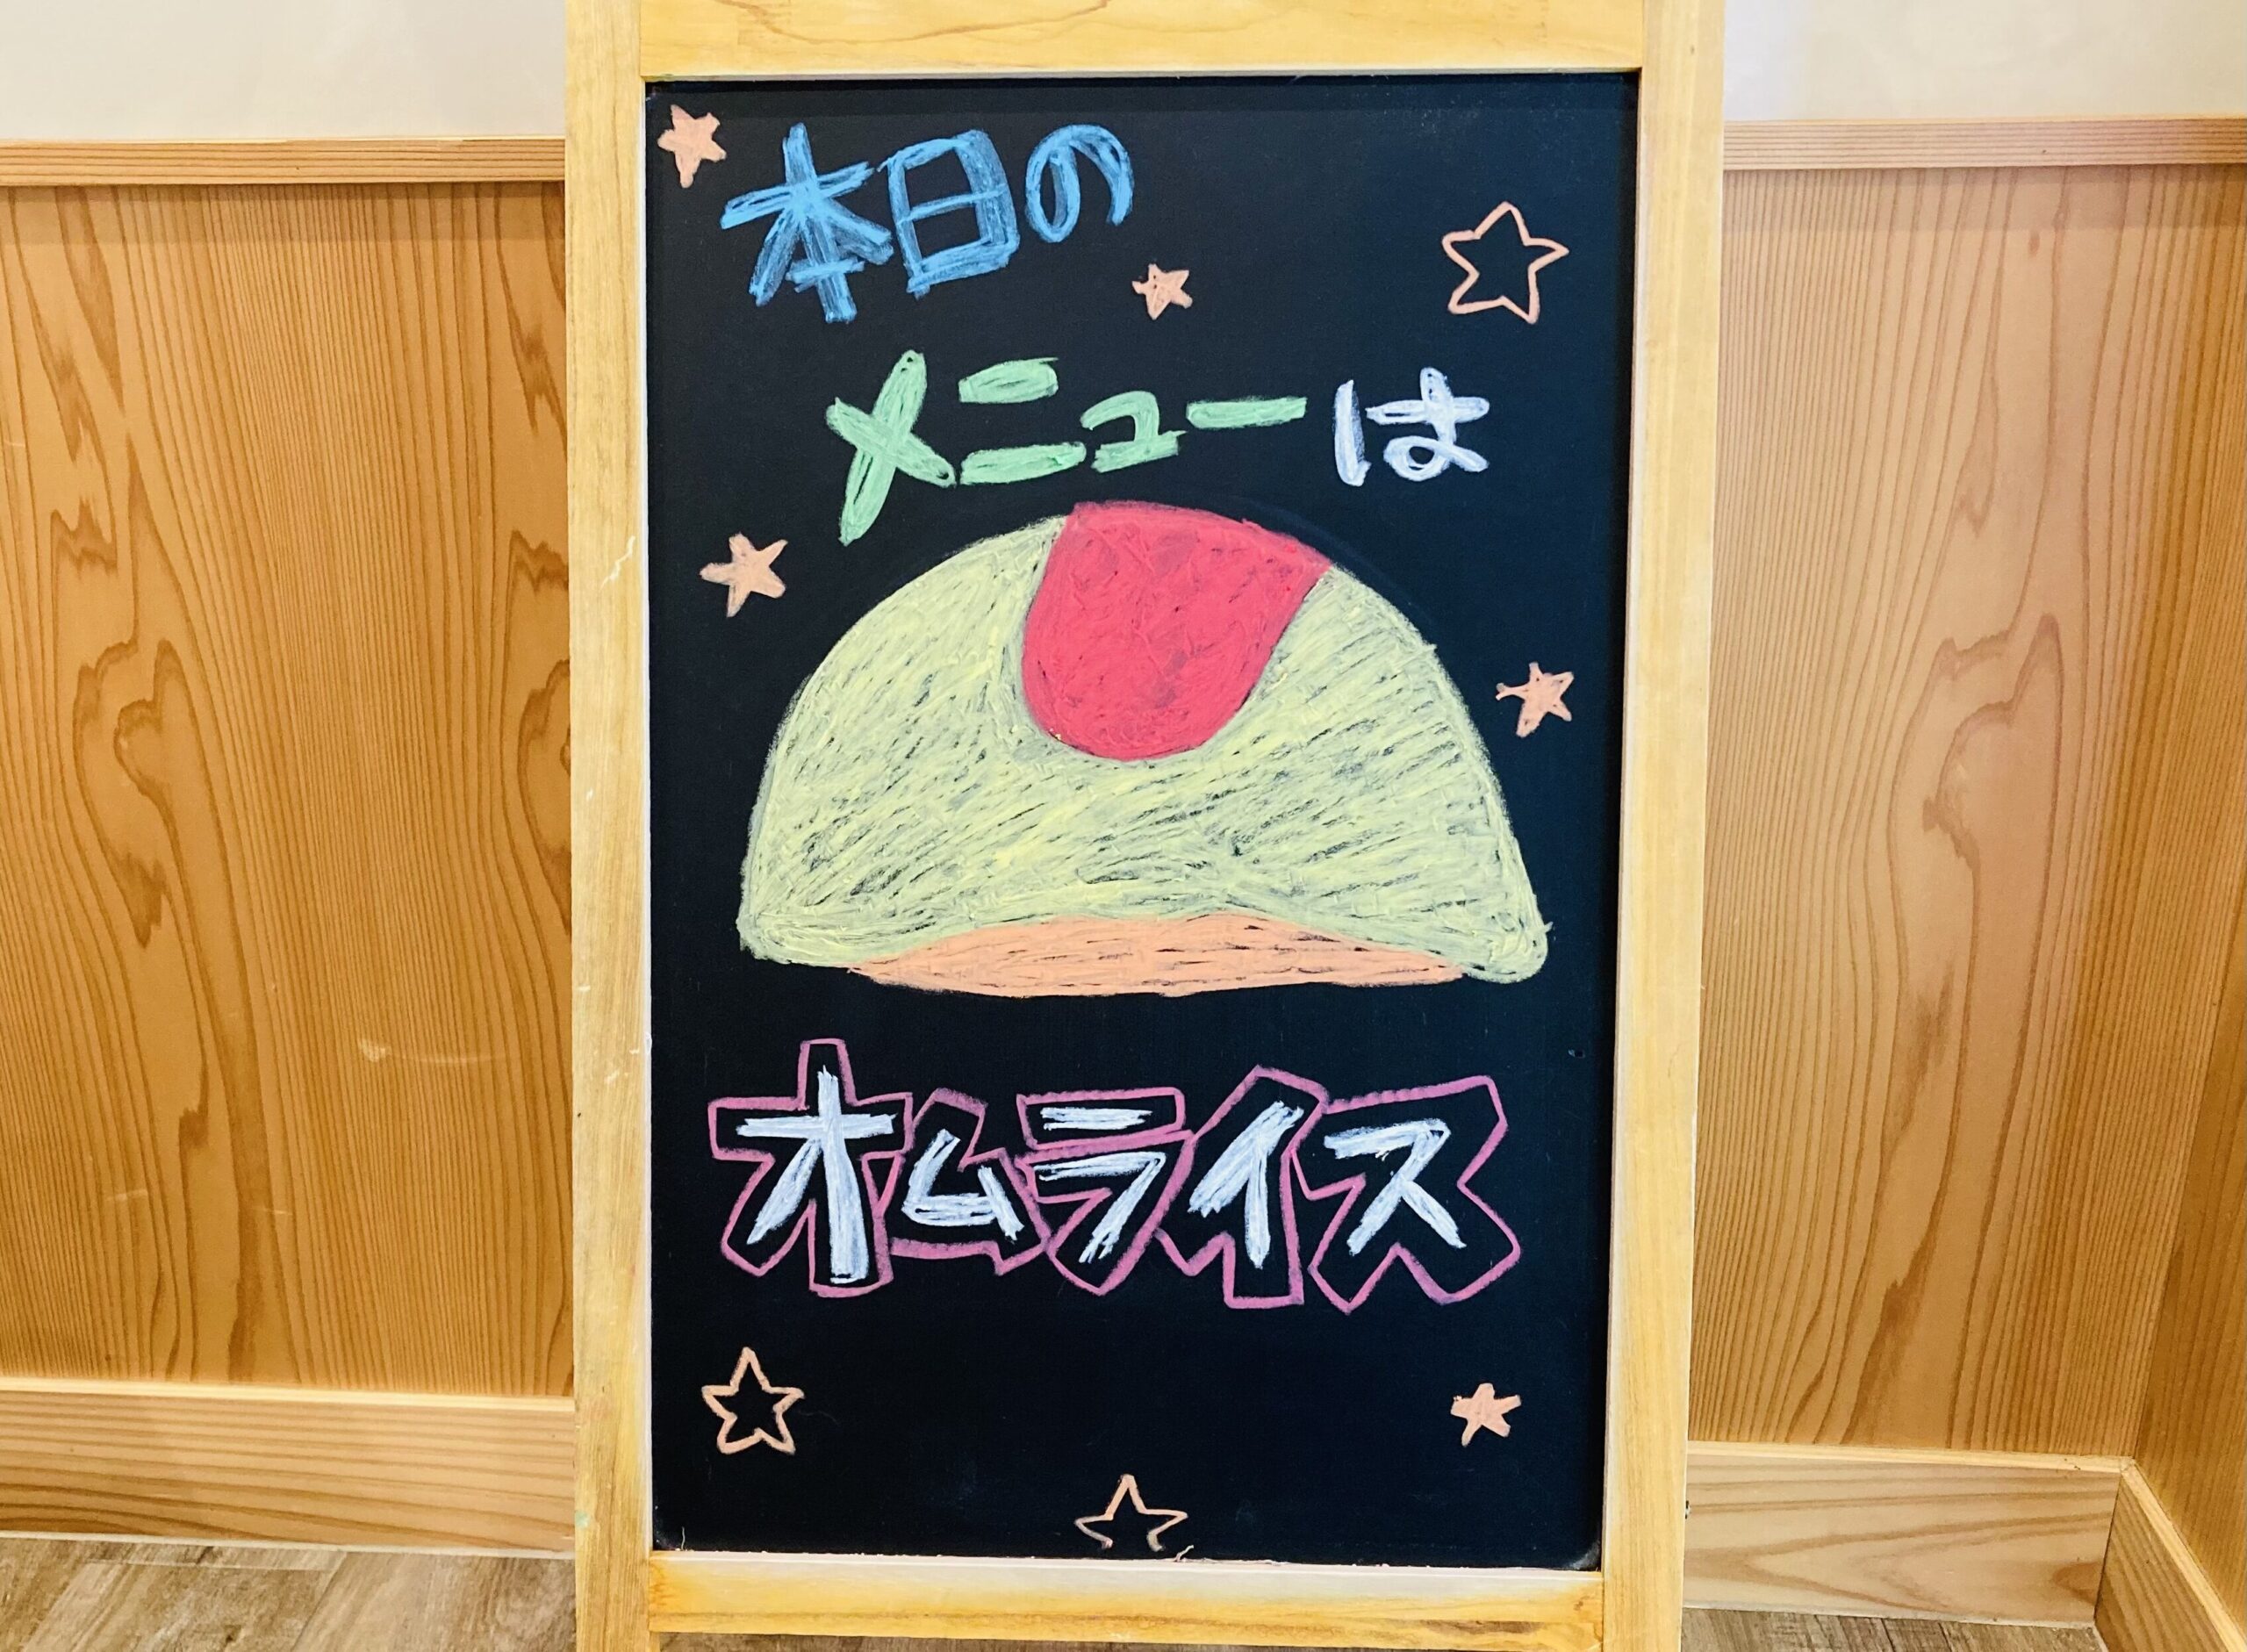 本日の
メニューは
オムライス